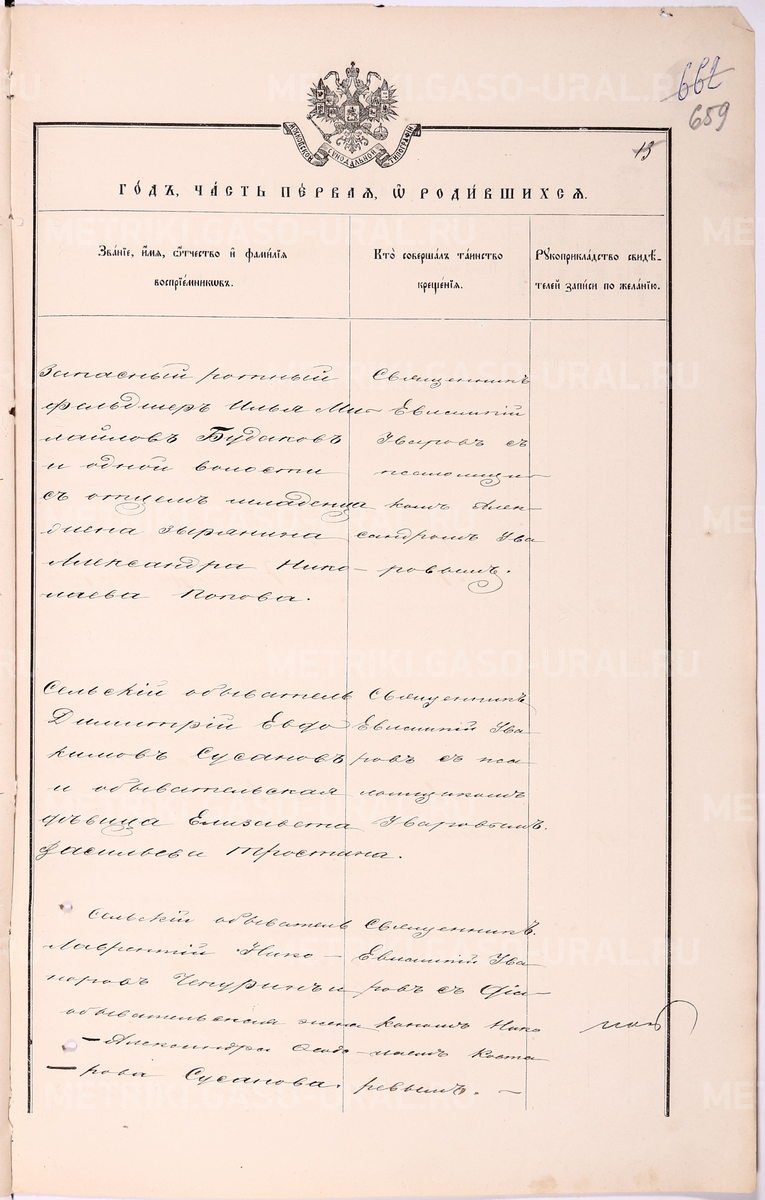 662
659
13
МОСКОВСКОЙ СѴНОДАЛЬНОЙ ТИПОГРАФІИ
ГО́ДЪ, ЧА́СТЬ ПЕ́РВАЯ, Ѡ РОДИ́ВШИХСѦ.
Зва́нїе, и́мѧ, ѻ҆́тчество и҆ фами́лїѧ
воспрїе́мникѡвъ.
Кто̀ соверша́лъ та́инство
креще́нїѧ.
Рꙋкоприкла́дство свидѣ́-
телей за́писи по жела́нїю.
Запасный ротный
фельдшеръ Илья Ми-
хайловъ Будаковъ
и одной волости
съ отцемъ младенца
жена Зырянина
Александра Нико-
лаева Попова.
Священникъ
Евлампій
Уваровъ съ
псаломщи-
комъ Алек-
сандромъ Ува
ровымъ.
Сельскій обыватель
Димитрій Евдо
кимовъ Сусановъ
и обывательская
дѣвица Елизавета
Васильева Тростина.
Священникъ
Евлампій Ува
ровъ съ пса
ломщикомъ
Уваровымъ.
Сельскій обыватель
Лаврентій Нико-
норовъ Чепуринъ и
обывательская жена
Александра Ѳедо
рова Сусанова.
Священникъ
Евлампій Ува
ровъ съ діа-
кономъ Нико
лаемъ Коста
ревымъ.